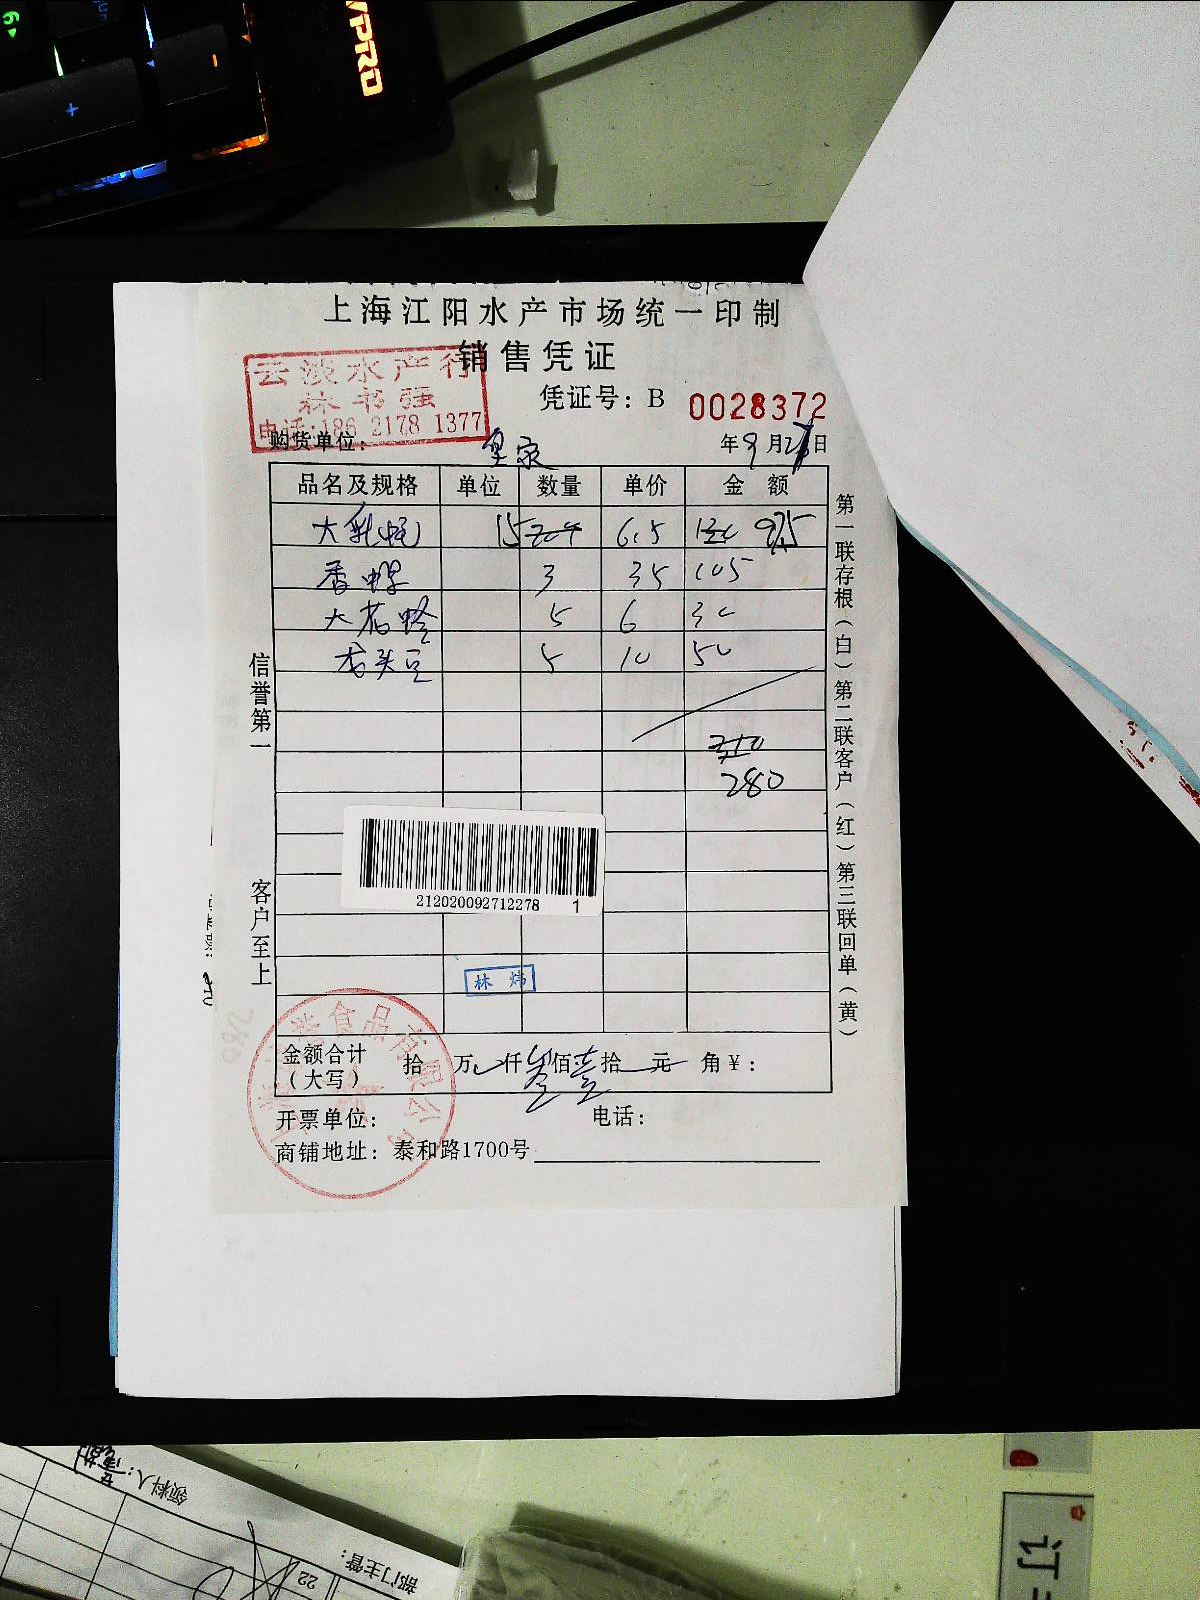 上海江阳水产市场统一印制
销售凭证
云淡水产行
林书强
电话:186 2178 1377
凭证号: B 0028372
购货单位: 皇家
年9月2日
品名及规格 单位 数量 单价 金 额
大乳蛏 15 6.5 97.5
香螺 3 35 105
大花蛤 5 6 30
龙头豆 5 10 50
310
280
212020092712278 1
林 炜
食品有限公司
金额合计 拾 万 仟 叁 佰 壹 拾 元 角 ¥:
(大写)
开票单位: 电话:
商铺地址: 泰和路1700号
信誉第一
客户至上
第一联存根(白)第二联客户(红)第三联回单(黄)
领料人:
部门主管:
22
订
VPRO
6
+